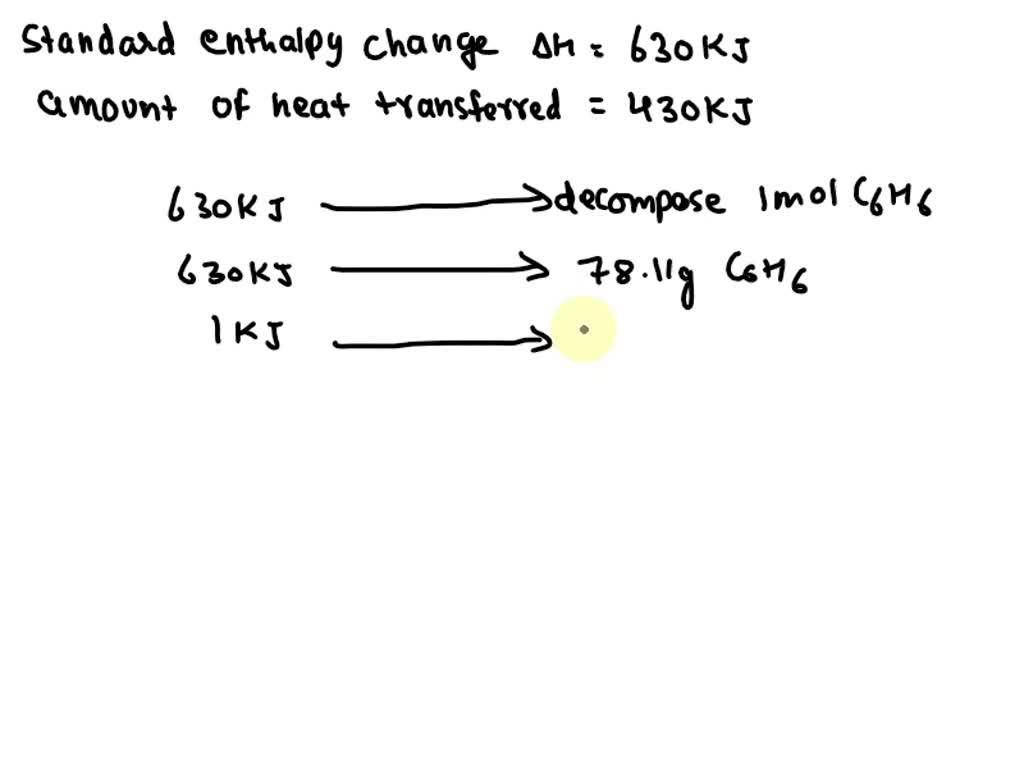 Standard enthalpy change ΔH = 630KJ
amount of heat transferred = 430KJ
630KJ → decompose 1mol C6H6
630KJ → 78.11g C6H6
1KJ →